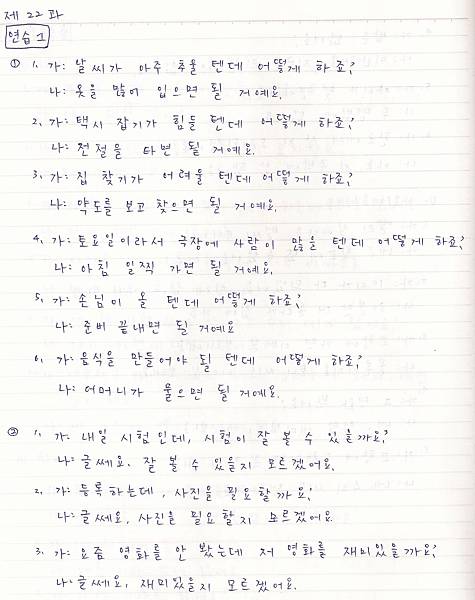 제 22 과
연습 1
① 1. 가: 날씨가 아주 추울 텐데 어떻게 하죠?
나: 옷을 많이 입으면 될 거예요.
2. 가: 택시 잡기가 힘들 텐데 어떻게 하죠?
나: 전철을 타면 될 거예요.
3. 가: 집 찾기가 어려울 텐데 어떻게 하죠?
나: 약도를 보고 찾으면 될 거예요.
4. 가: 토요일이라서 극장에 사람이 많을 텐데 어떻게 하죠?
나: 아침 일찍 가면 될 거예요.
5. 가: 손님이 올 텐데 어떻게 하죠?
나: 준버 끝내면 될 거예요
6. 가: 음식을 만들어야 될 텐데 어떻게 하죠?
나: 어머니가 울으면 될 거예요.
② 1. 가: 내일 시험인데, 시험이 잘 볼 수 있을까요?
나: 글쎄요. 잘 볼 수 있을지 모르겠어요.
2. 가: 등록하는데, 사진을 필요할까요?
나: 글쎄요, 사진을 필요할지 모르겠어요.
3. 가: 요즘 영화를 안 봤는데 저 영화를 재미있을까요?
나: 글쎄요, 재미있을지 모르겠어요.